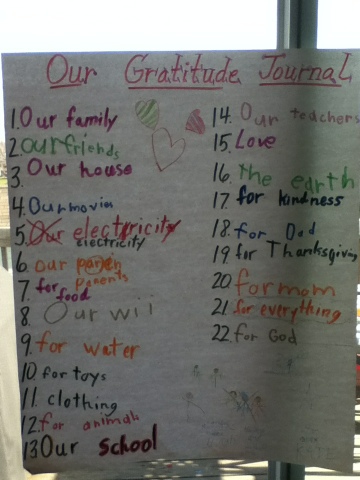 Our Gratitude Journal
1. Our family
2. Our friends
3. Our house
4. Our movies
5. Our electricity
electricity
6. our paren
parents
7. for food
8. Our wii
9. for water
10. for toys
11. clothing
12. for animals
13 Our school
14. Our teachers
15. Love
16. the earth
17. for kindness
18. for Dad
19. for Thanksgiving
20 for mom
21. for everything
22. for God